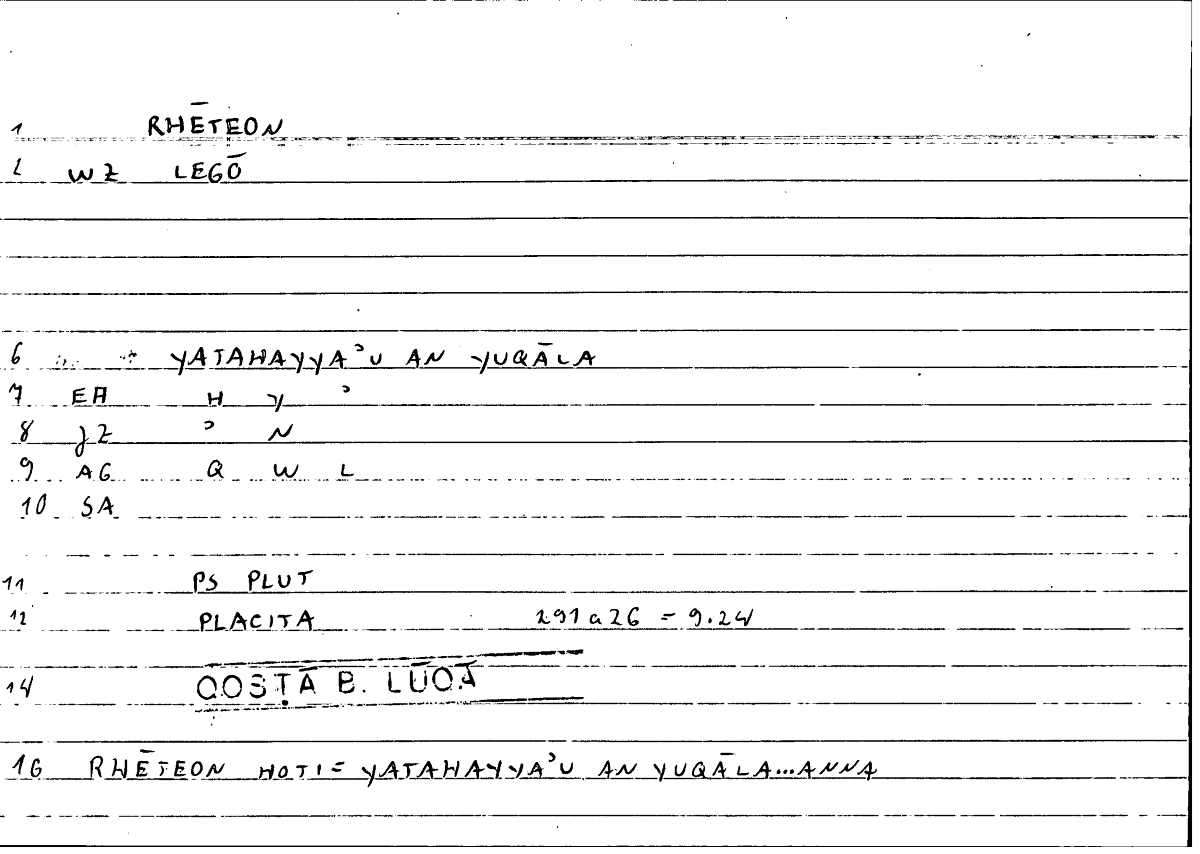 1 RHĒTEON
2 WZ LEGŌ
6 YATAHAYYAʾU AN YUQĀLA
7 EA H Y ʾ
8 JZ ʾ N
9 AG Q W L
10 SA
11 PS PLUT
12 PLACITA 291a26 = 9.24
14 QOSṬĀ B. LŪQĀ
16 RHĒTEON HOTI= YATAHAYYAʾU AN YUQĀLA...ANNA